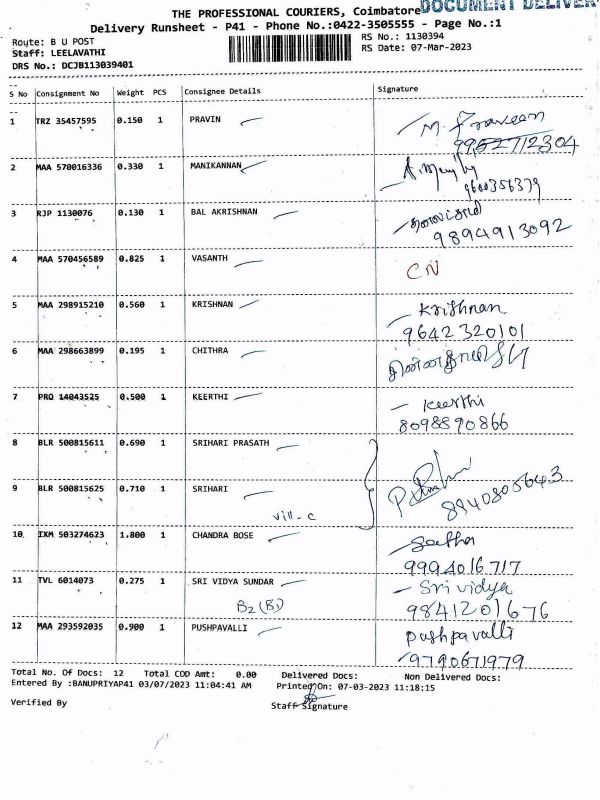 DOCUMENT DELIVER
THE PROFESSIONAL COURIERS, Coimbatore
Delivery Runsheet - P41 - Phone No.:0422-3505555 - Page No.:1
Route: B U POST
RS No.: 1130394
Staff: LEELAVATHI
RS Date: 07-Mar-2023
DRS No.: DCJB113039401
S No Consignment No Weight PCS Consignee Details Signature
1 TRZ 35457595 0.150 1 PRAVIN M. Praveen
9952712304
2 MAA 570016336 0.330 1 MANIKANNAN
9600356379
3 RJP 1130076 0.130 1 BAL AKRISHNAN
9894913092
4 MAA 570456589 0.825 1 VASANTH CN
5 MAA 298915210 0.560 1 KRISHNAN Krishnan
9642320101
6 MAA 298663899 0.195 1 CHITHRA
7 PRO 14043525 0.500 1 KEERTHI Keerthi
8098890866
8 BLR 500815611 0.690 1 SRIHARI PRASATH
9 BLR 500815625 0.710 1 SRIHARI 8940805643
vill-c
10 IXM 503274623 1.800 1 CHANDRA BOSE Seetha
9994016717
11 TVL 6014073 0.275 1 SRI VIDYA SUNDAR Sri vidya
B2 (B1) 9841201676
12 MAA 293592035 0.900 1 PUSHPAVALLI pushpavalli
9790671979
Total No. Of Docs: 12 Total COD Amt: 0.00 Delivered Docs: Non Delivered Docs:
Entered By :BANUPRIYAP41 03/07/2023 11:04:41 AM Printed On: 07-03-2023 11:18:15
Verified By Staff Signature